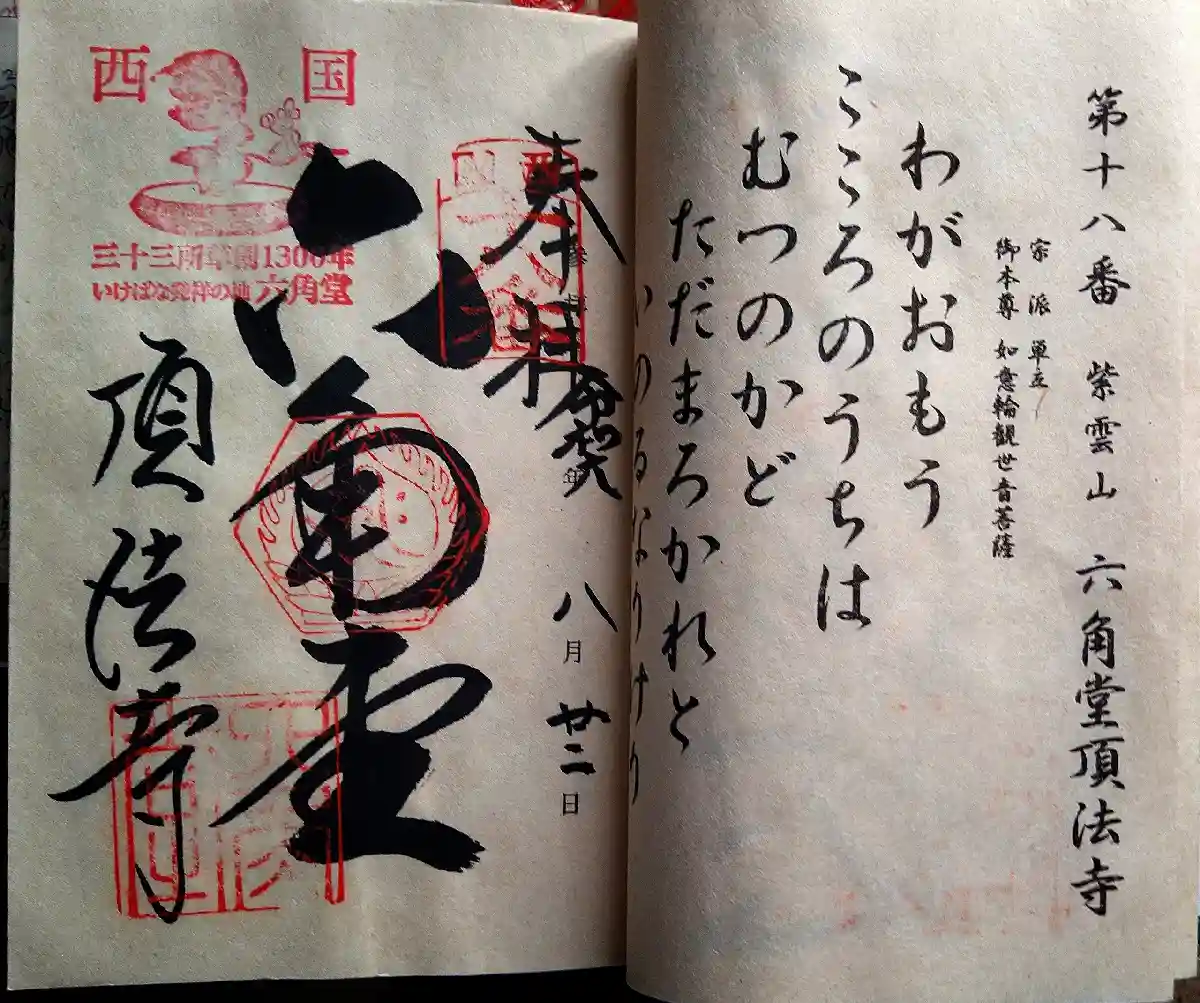 第十八番 紫雲山 六角堂頂法寺
宗派 単立
御本尊 如意輪観世音菩薩
わがおもう
こころのうちは
むつのかど
ただまろかれと
いのるなりけり
奉拝
癸
年 八月廿二日
西国
三十三所草創1300年
いけばな発祥の地 六角堂
六角堂
頂法寺